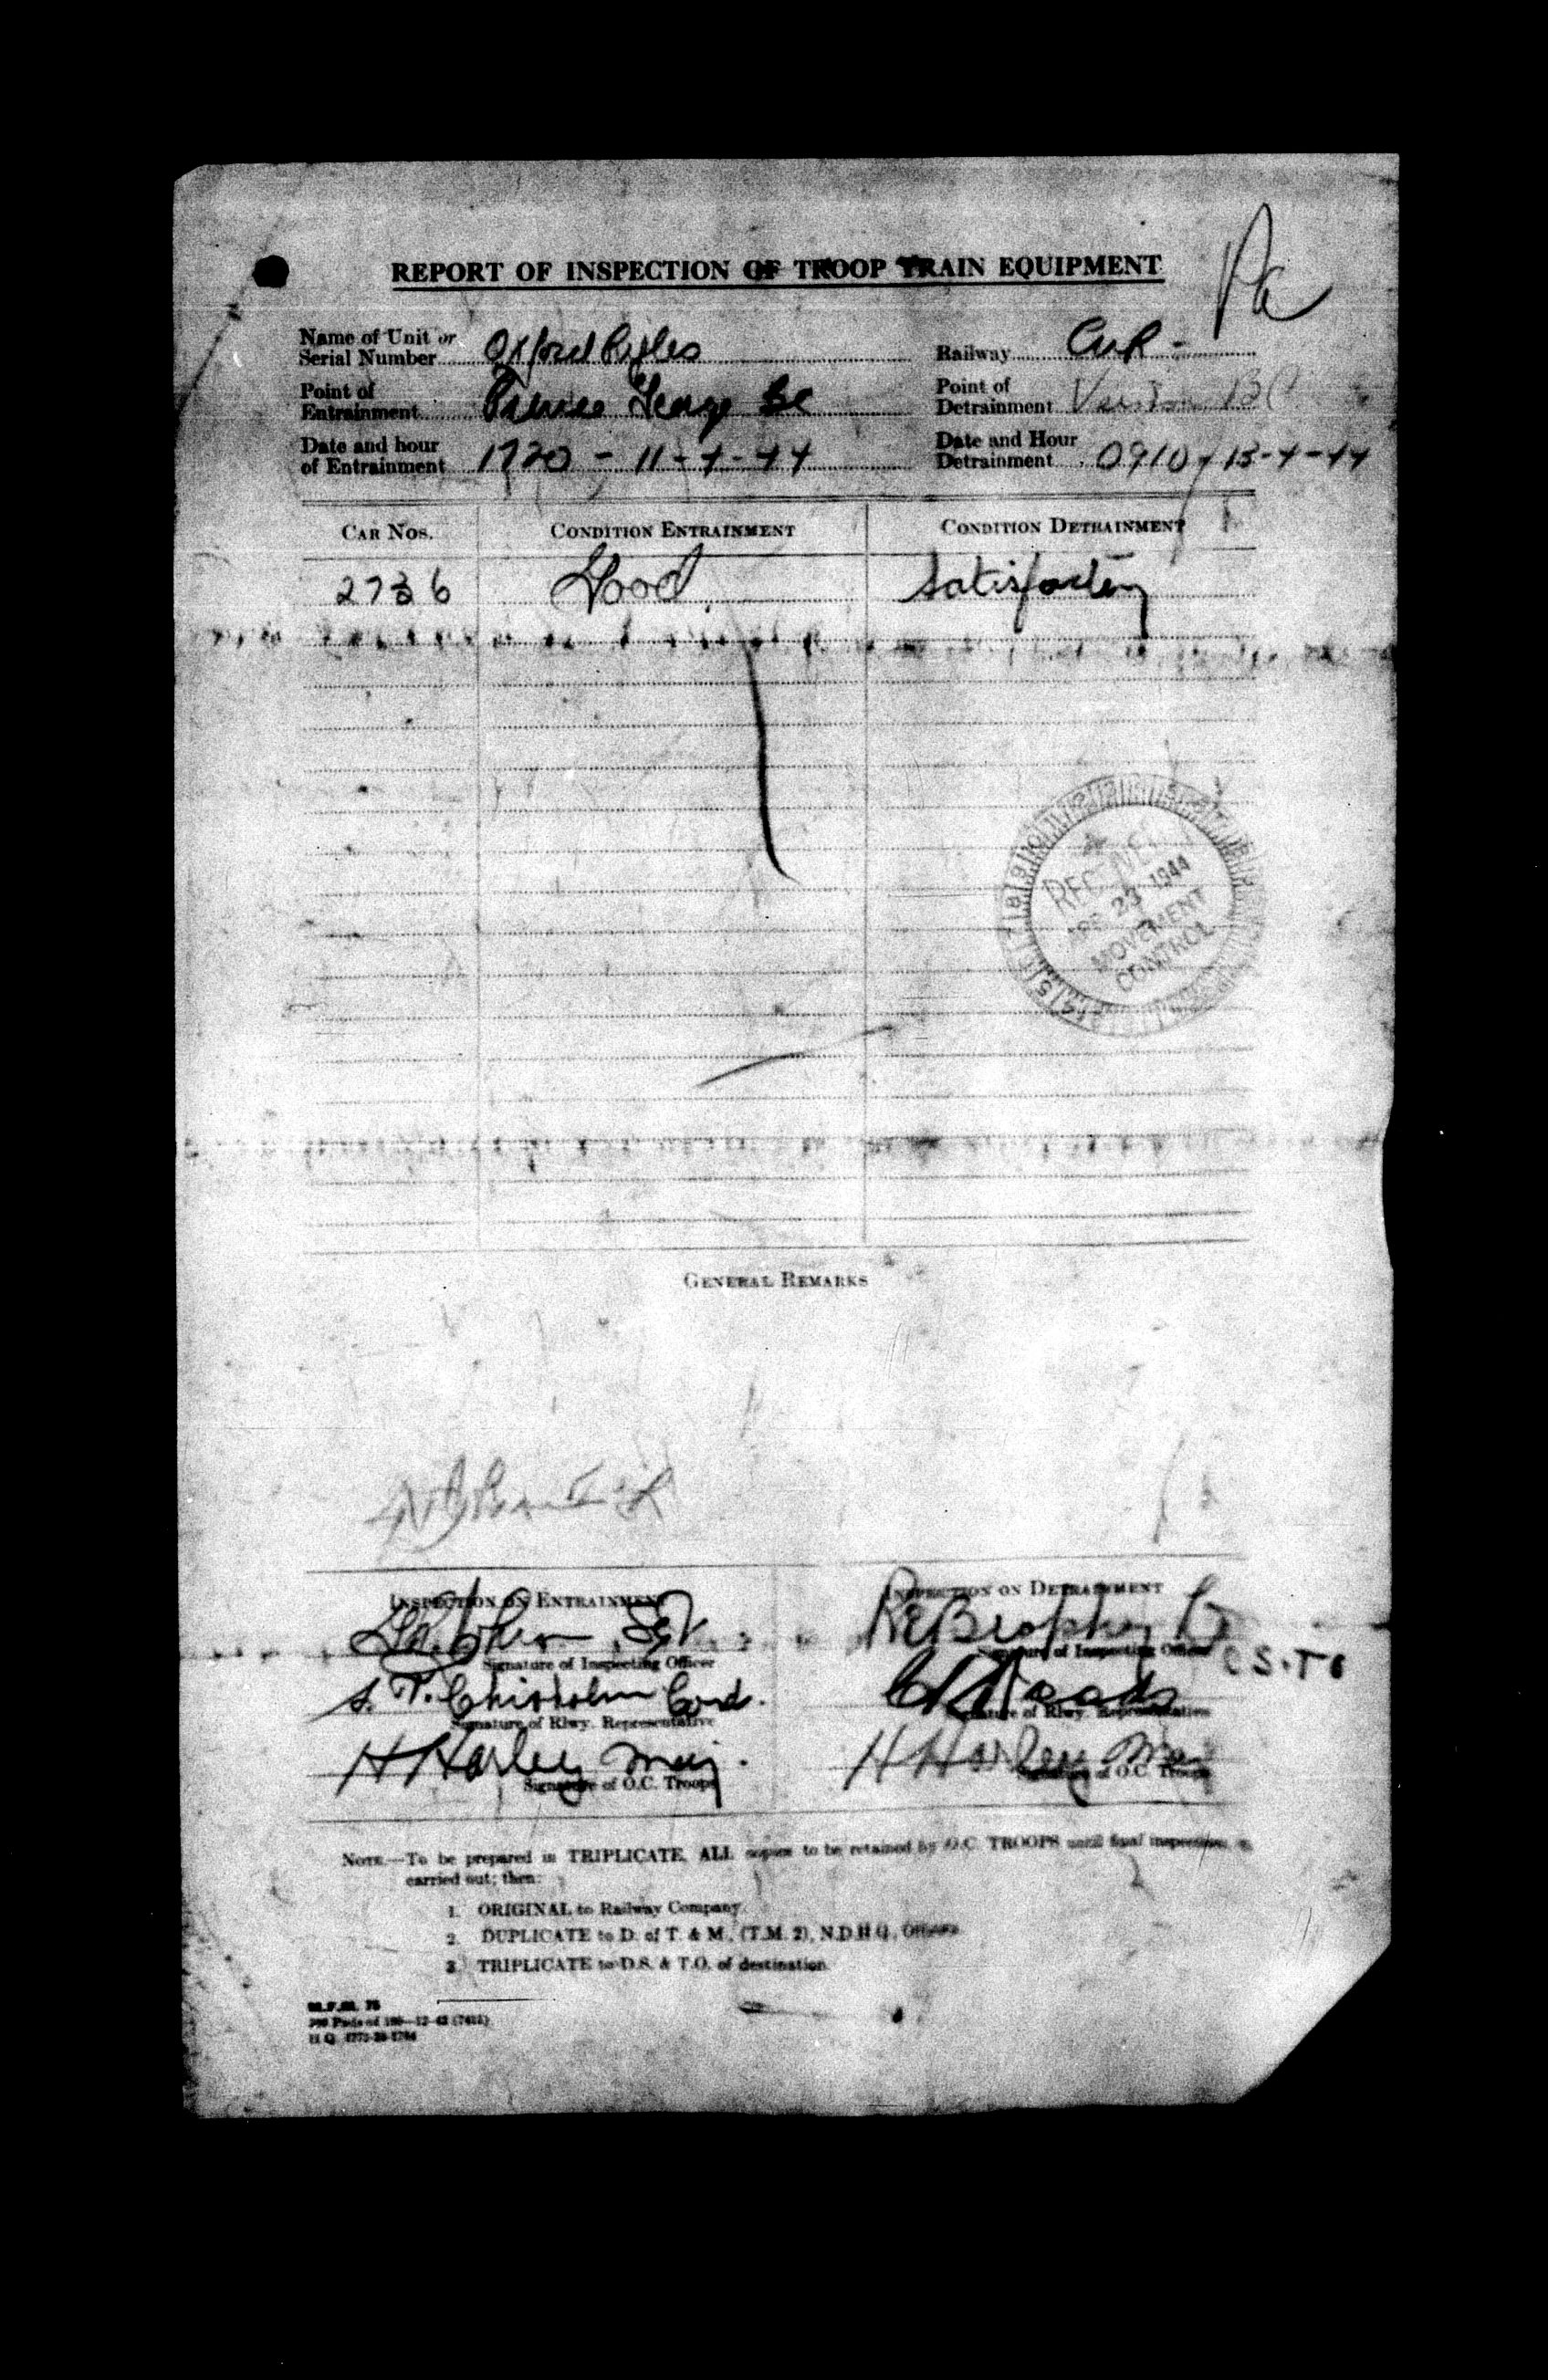 REPORT OF INSPECTION OF TROOP TRAIN EQUIPMENT
Name of Unit or Serial Number Oxford Rifles
Railway CNR -
Point of Entrainment Prince George BC
Point of Detrainment Vernon BC
Date and hour of Entrainment 1720 - 11-4-44
Date and Hour Detrainment 0910 13-4-44
CAR NOS. CONDITION ENTRAINMENT CONDITION DETRAINMENT
2736 Good. Satisfactory
RECEIVED
APR 23 1944
MOVEMENT
CONTROL
GENERAL REMARKS
INSPECTION ON ENTRAINMENT
INSPECTION ON DETRAINMENT
Sgt
R E Brophey
Signature of Inspecting Officer
Signature of Inspecting Officer
S. T. Chisholm Cond.
Woods
Signature of Rlwy. Representative
Signature of Rlwy. Representative
H Harley Maj.
H Harley Maj
Signature of O.C. Troops
Signature of O.C. Troops
NOTE—To be prepared in TRIPLICATE, ALL copies to be retained by O.C. TROOPS until final inspection is
carried out; then:
1. ORIGINAL to Railway Company.
2. DUPLICATE to D. of T. & M., (T.M. 2), N.D.H.Q., Ottawa
3. TRIPLICATE to D.S. & T.O. of destination.
M.F.M. 75
H.Q. 1772-39-1764